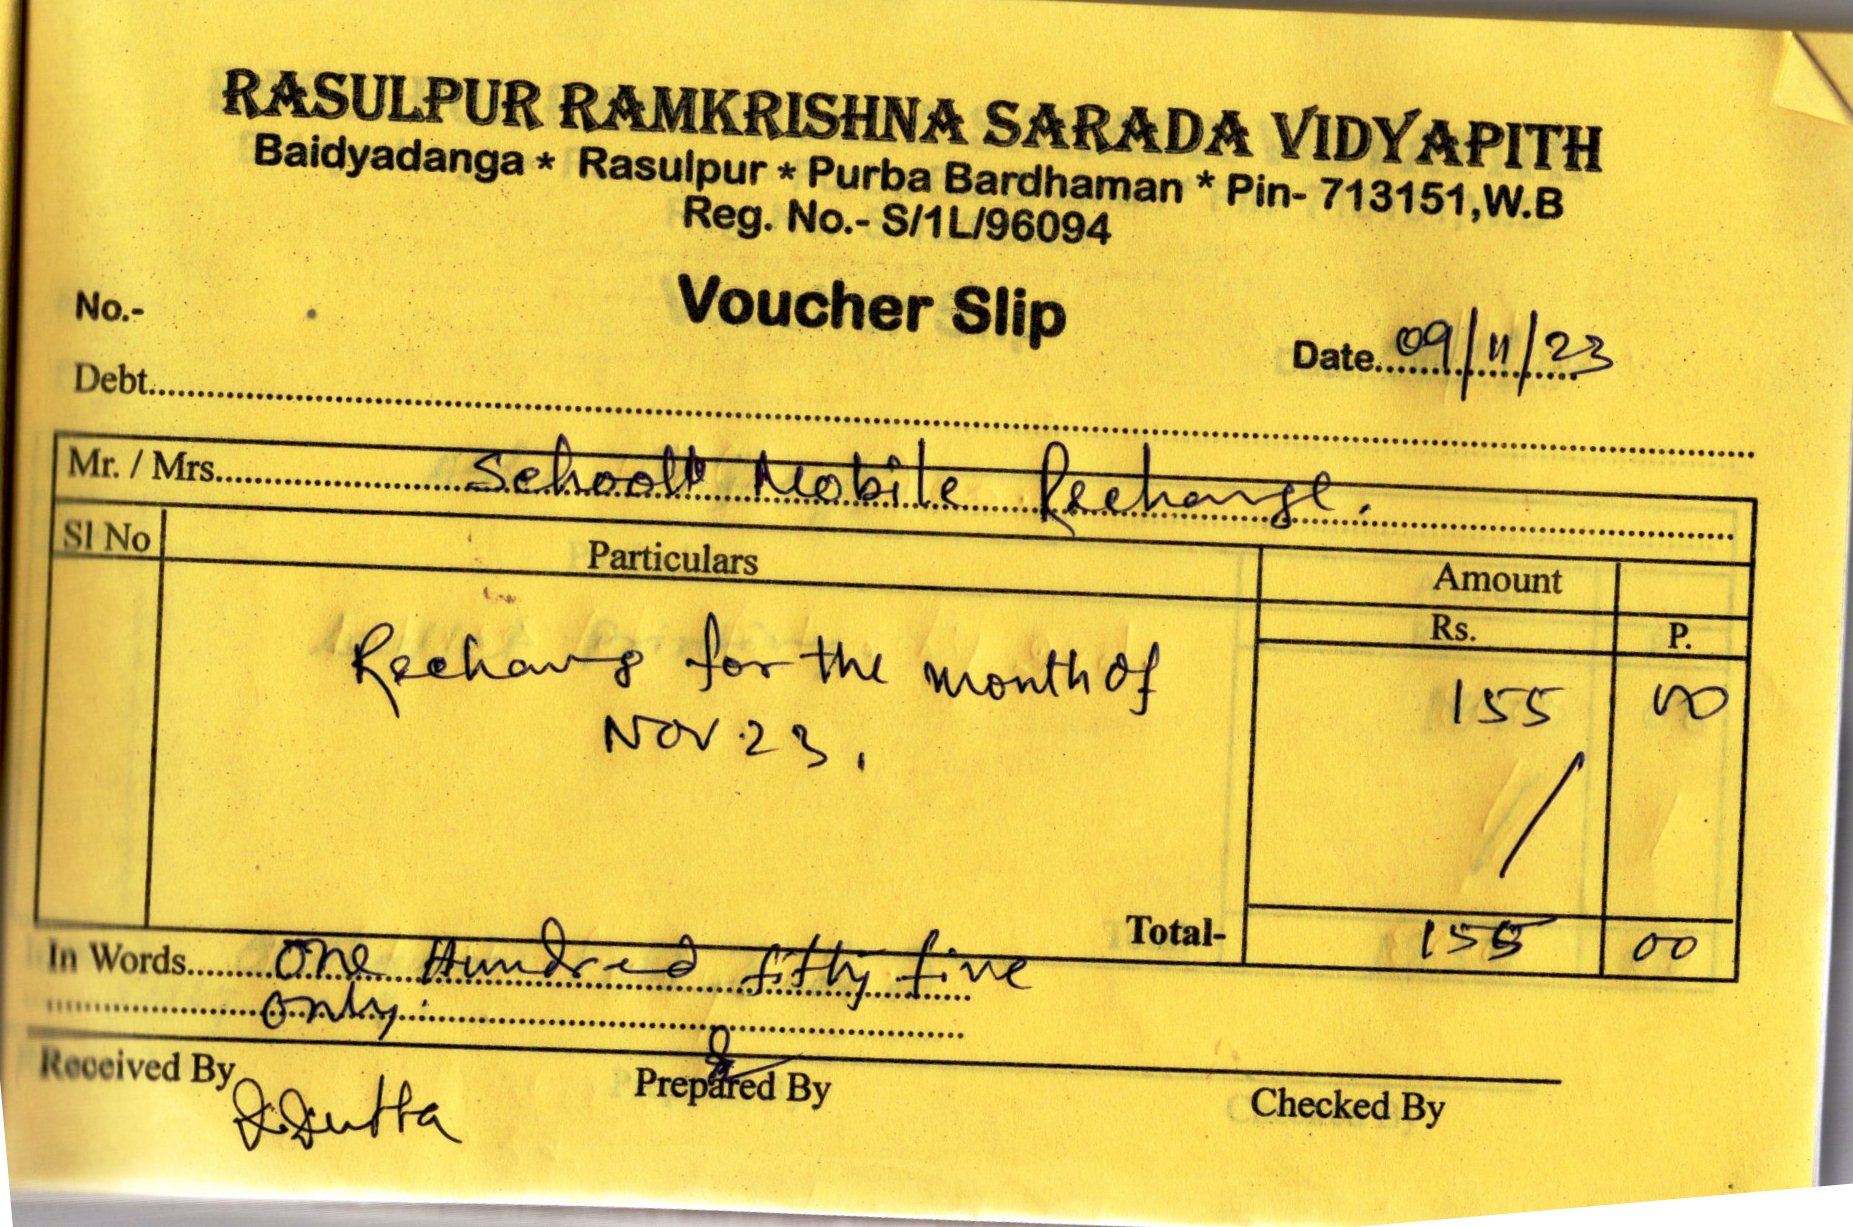 RASULPUR RAMKRISHNA SARADA VIDYAPITH
Baidyadanga * Rasulpur * Purba Bardhaman * Pin- 713151,W.B
Reg. No.- S/1L/96094
Voucher Slip
No.-
Date. 09/11/23
Debt.
Mr. / Mrs. School Mobile Recharge.
Sl No Particulars Amount
Rs. P.
Recharg for the month of 155 00
NOV.23.
Total- 155 00
In Words. One Hundred fifty five
only.
Received By Prepared By Checked By
D.Dutta